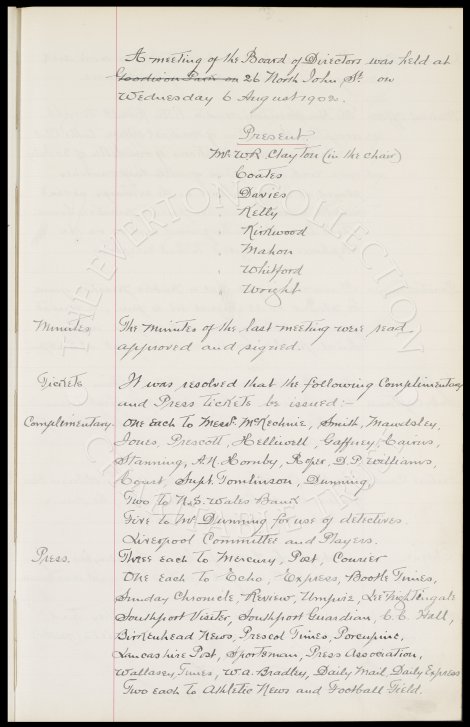 A meeting of the Board of Directors was held at
Goodison Park on 26 North John St. on
Wednesday 6 August 1902.
Present.
Mr. W.R. Clayton (in the chair)
Coates
Davies
Kelly
Kirkwood
Mahon
Whitford
Wright
Minutes The Minutes of the last meeting were read
approved and signed.
Tickets It was resolved that the following Complimentary
and Press tickets be issued:-
Complimentary. One each to Messrs. McKechnie, Smith, Mawdsley,
Jones, Prescott, Helliwell, Gaffney, Cairns,
Stanning, A.N. Hornby, Roper, D.P. Williams,
Court, Supt. Tomlinson, Dunning
Two to N.S. Wales Bank
Five to Mr. Dunning for use of detectives.
Liverpool Committee and Players.
Press. Three each to Mercury, Post, Courier
One each to Echo, Express, Bootle Times,
Sunday Chronicle, Review, Umpire, Lee Nightingale
Southport Visiter, Southport Guardian, C.E. Hall,
Birkenhead News, Prescot Times, Porcupine,
Lancashire Post, Sportsman, Press Association,
Wallasey Times, W.A. Bradley, Daily Mail, Daily Express
Two each to Athletic News and Football Field.
THE EVERTON COLLECTION